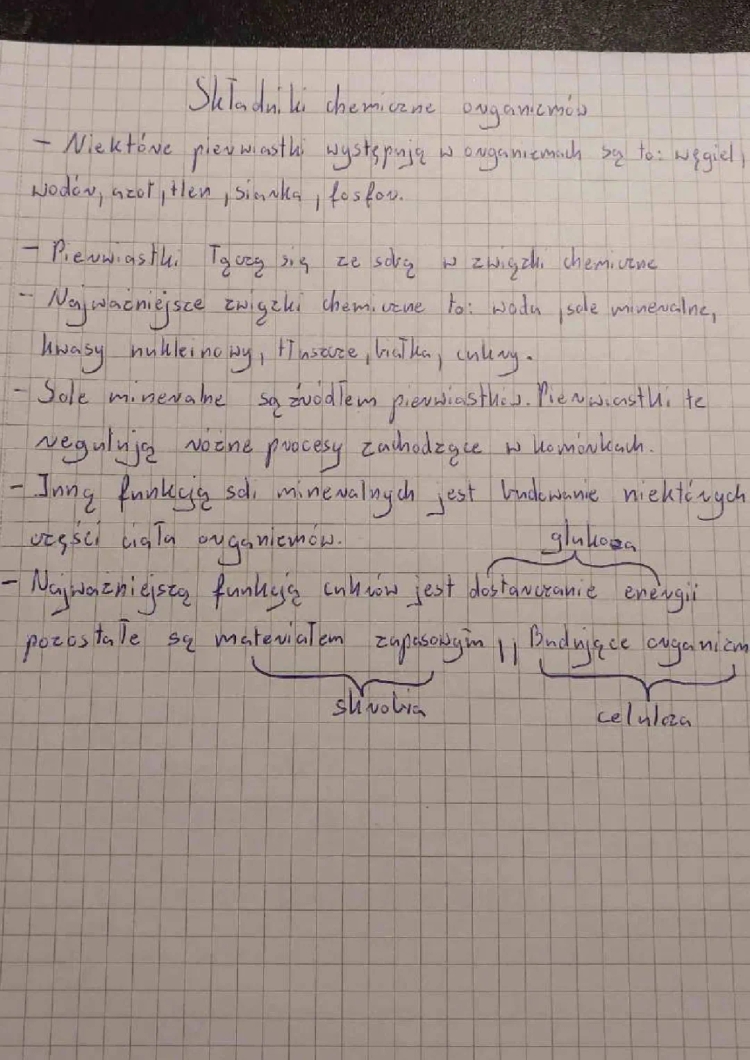 Składniki chemiczne organizmów
- Niektóre pierwiastki występują w organizmach są to: węgiel,
wodór, azot, tlen, siarka, fosfor.
- Pierwiastki łączą się ze sobą w związki chemiczne
- Najważniejsze związki chemiczne to: woda, sole mineralne,
kwasy nukleinowy, tłuszcze, białka, cukry.
- Sole mineralne są źródłem pierwiastków. Pierwiastki te
regulują różne procesy zachodzące w komórkach.
- Inną funkcją soli mineralnych jest budowanie niektórych
części ciała organizmów.
glukoza
- Najważniejszą funkcją cukrów jest dostarczanie energii
pozostałe są materiałem zapasowym, Budujące organizm
skrobia
celuloza